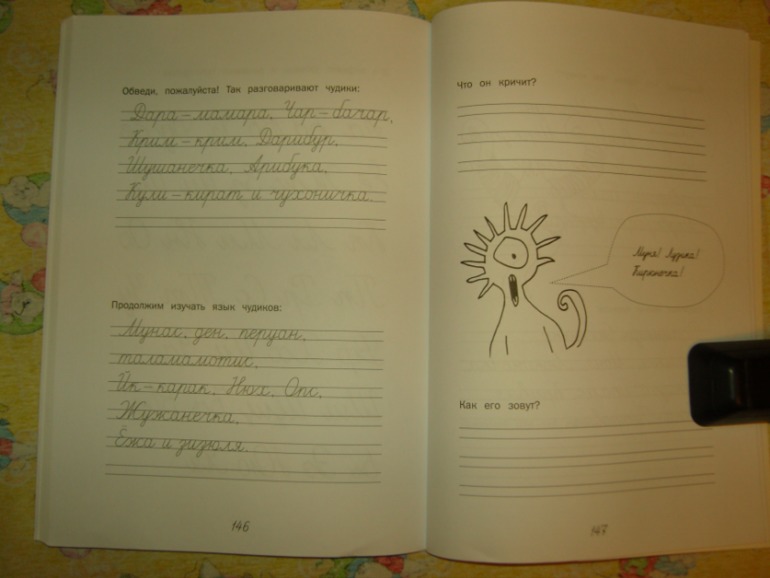 Обведи, пожалуйста! Так разговаривают чудики:
Дара – мамара, Чар – бачар,
Крим – крим, Дарибур,
Шушанечка, Арибука,
Кули – кират и чухоничка.
Продолжим изучать язык чудиков:
Мунас, ден, перцан,
таламамотис,
Йк – карак, Нюх, Опс,
Жужанечка,
Ёжа и зизюля.
146
Что он кричит?
Муня! Лузика!
Кирюночка!
Как его зовут?
147